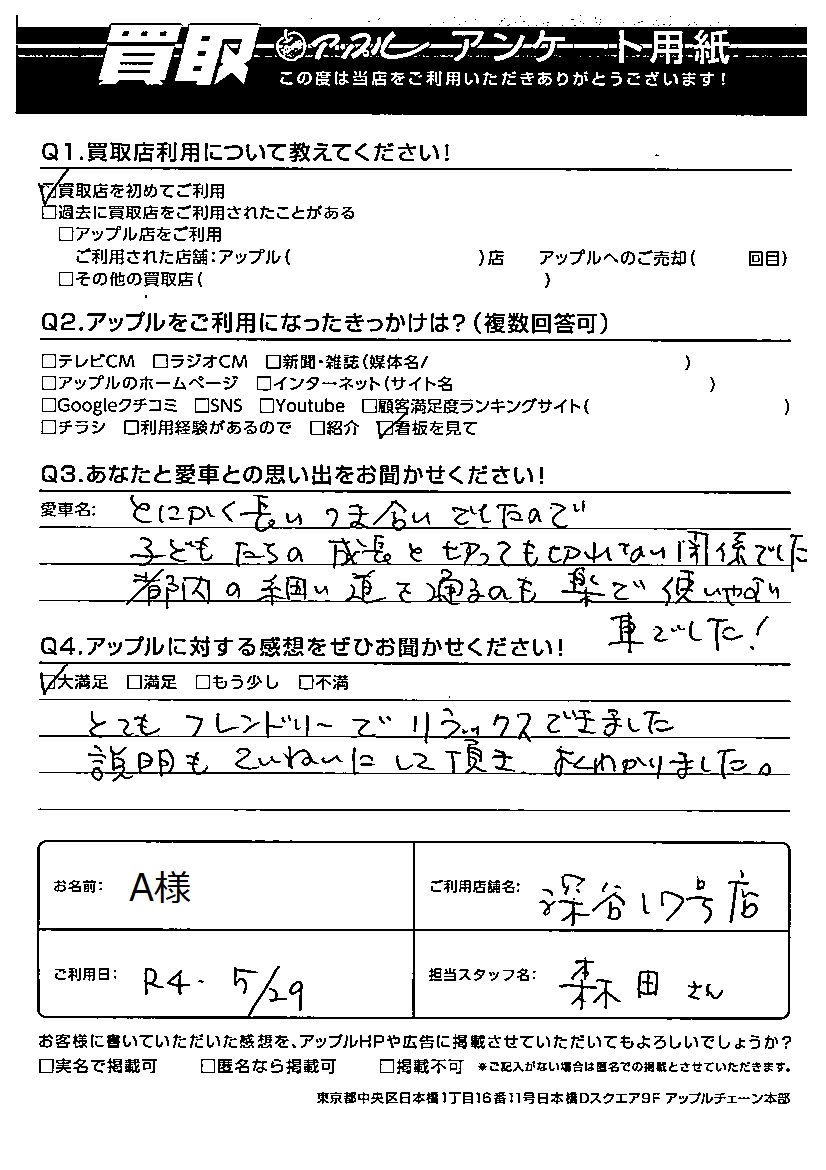 買取 アップル アンケート用紙
この度は当店をご利用いただきありがとうございます!
Q1.買取店利用について教えてください!
☑買取店を初めてご利用
□過去に買取店をご利用されたことがある
□アップル店をご利用
ご利用された店舗:アップル( )店 アップルへのご売却( 回目)
□その他の買取店( )
Q2.アップルをご利用になったきっかけは?(複数回答可)
□テレビCM □ラジオCM □新聞・雑誌(媒体名/ )
□アップルのホームページ □インターネット(サイト名 )
□Googleクチコミ □SNS □Youtube □顧客満足度ランキングサイト( )
□チラシ □利用経験があるので □紹介 ☑看板を見て
Q3.あなたと愛車との思い出をお聞かせください!
愛車名: とにかく長いつき合いでしたので
子どもたちの成長と切っても切れない関係でした
都内の細い道を通るのも楽で使いやすい
車でした!
Q4.アップルに対する感想をぜひお聞かせください!
☑大満足 □満足 □もう少し □不満
とてもフレンドリーでリラックスできました
説明もていねいにして頂きよくわかりました。
お名前: A様
ご利用店舗名: 深谷17号店
ご利用日: R4. 5/29
担当スタッフ名: 森田さん
お客様に書いていただいた感想を、アップルHPや広告に掲載させていただいてもよろしいでしょうか?
□実名で掲載可 □匿名なら掲載可 □掲載不可 ※ご記入がない場合は匿名での掲載とさせていただきます。
東京都中央区日本橋1丁目16番11号日本橋Dスクエア9F アップルチェーン本部